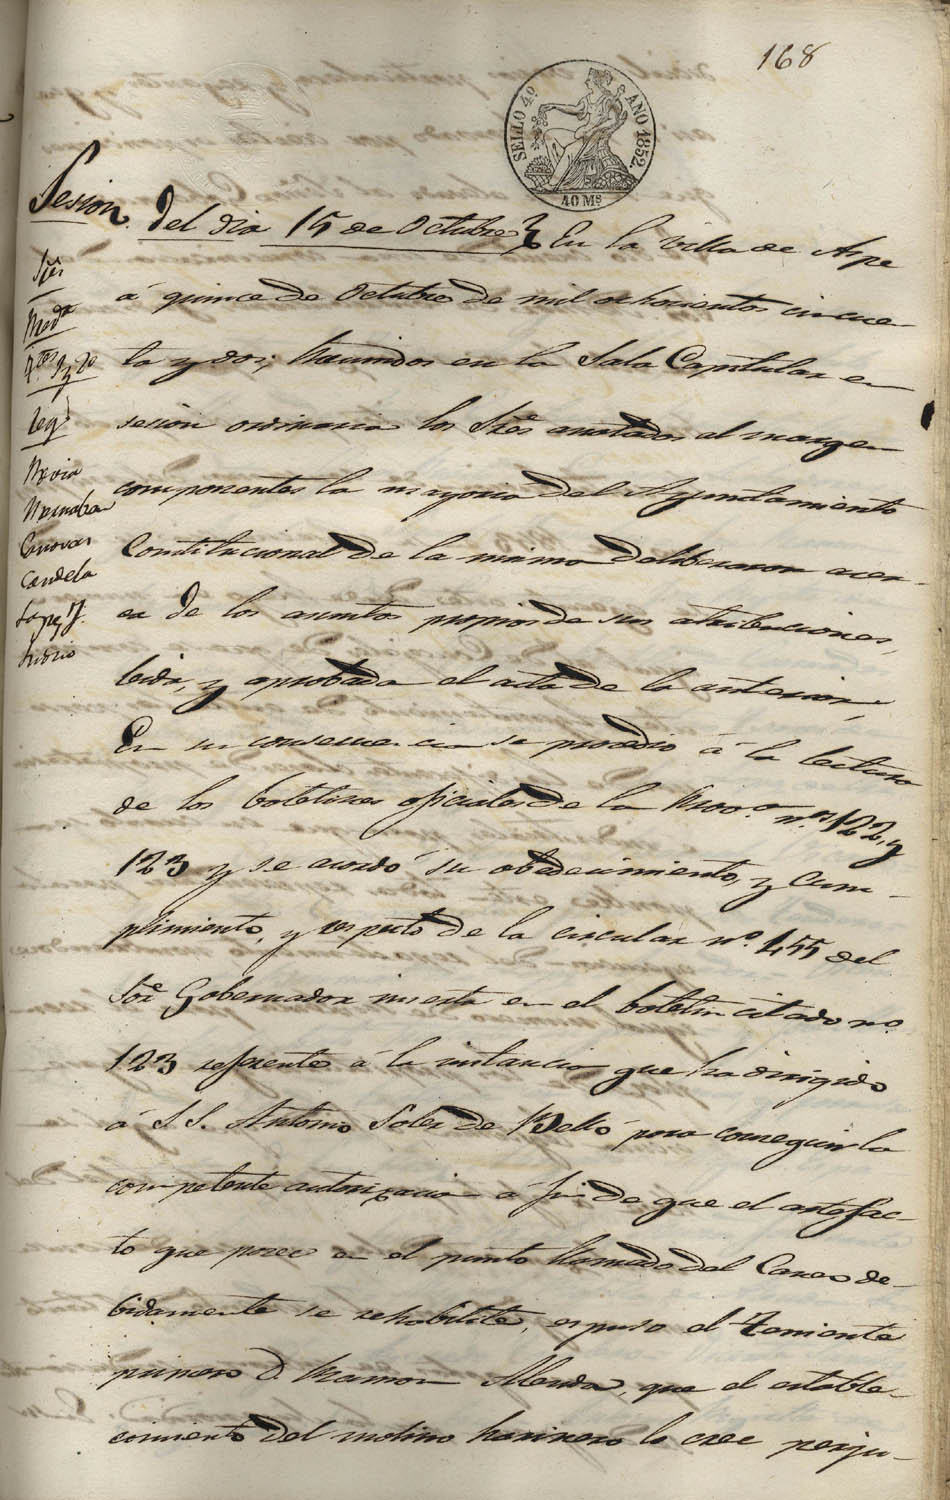 168
SELLO 4º AÑO 1852.
40 Ms
Sesion del dia 15 de Octubre En la villa de Aspe
á quince de Octubre de mil ochocientos cincuen
ta y dos; Reunidos en la Sala Capitular en
sesion ordinaria los Sres anotados al margen
componentes la mayoria del Ayuntamiento
Constitucional de la misma deliberaron acer-
ca de los asuntos propios de sus atribuciones,
leida, y aprobada el acta de la anterior,
En su consecuencia se procedio á la lectura
de los boletines oficiales de la Provª nos 122, y
123 y se acordó su obedecimiento, y cum-
plimiento, y respecto de la circular nº 455 del
Sor Gobernador inserta en el boletin citado nº
123 referente á la instancia que ha dirigido
á S. S. Antonio Soler de Belló para conseguir la
competente autorizacion á fin de que el artefac-
to que posee en el punto llamado del Carer de-
bidamente se rehabilite, espuso el Teniente
primero D. Ramon Almda, que el estable-
cimiento del molino harinero lo cree perju-
Sres
Regs
Candela